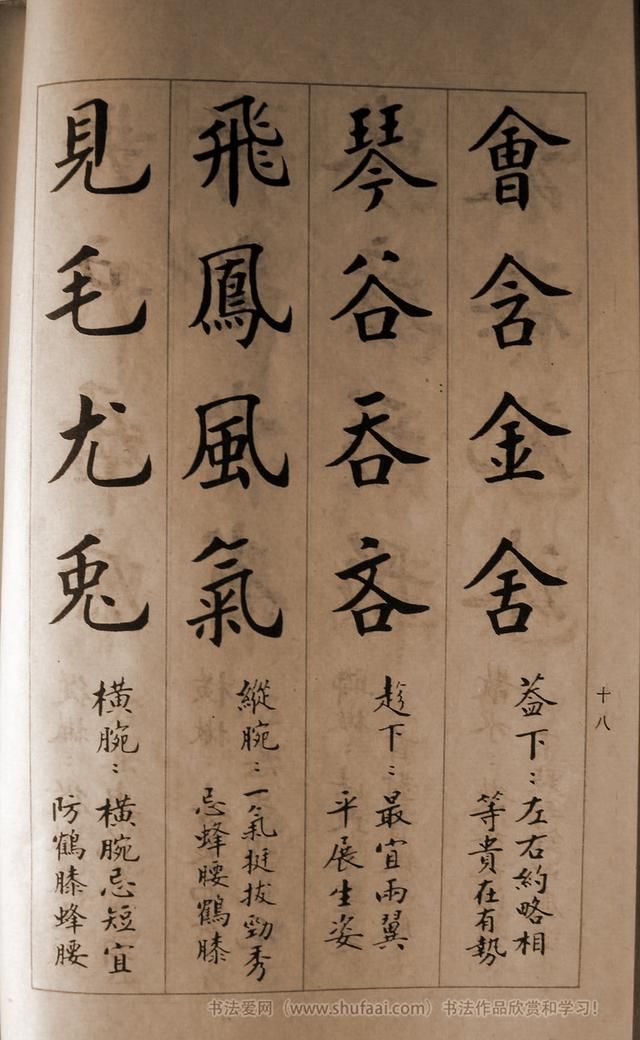 會含金舍
蓋下：左右約略相
等貴在有勢
琴谷吞吝
趁下：最宜兩翼
平展生姿
飛鳳風氣
縱腕：一氣挺拔勁秀
忌蜂腰鶴膝
見毛尤兎
橫腕：橫腕忌短宜
防鶴膝蜂腰
十八
书法爱网（www.shufaai.com）书法作品欣赏和学习！